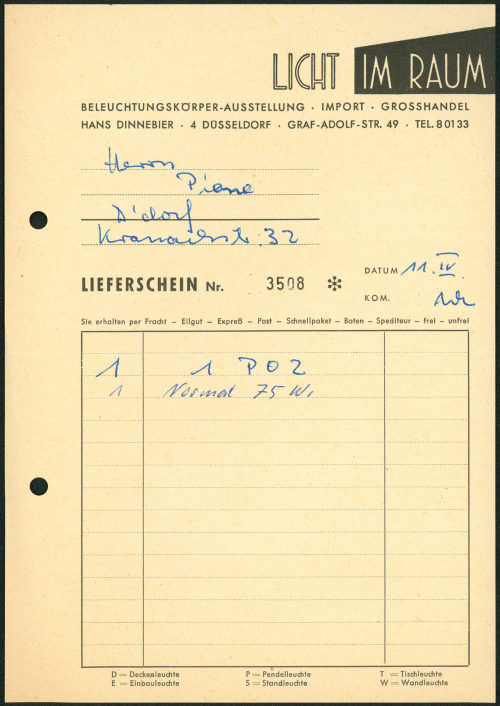 LICHT IM RAUM
BELEUCHTUNGSKÖRPER-AUSSTELLUNG · IMPORT · GROSSHANDEL
HANS DINNEBIER · 4 DÜSSELDORF · GRAF-ADOLF-STR. 49 · TEL. 80133
Herrn
Piene
D'dorf
32
LIEFERSCHEIN Nr. 3508 *
DATUM 11. IV
KOM.
Sie erhalten per Fracht – Eilgut – Expreß – Post – Schnellpaket – Boten – Spediteur – frei – unfrei
1 1 P02
1 Normal 75 W.
D = Deckenleuchte P = Pendelleuchte T = Tischleuchte
E = Einbauleuchte S = Standleuchte W = Wandleuchte